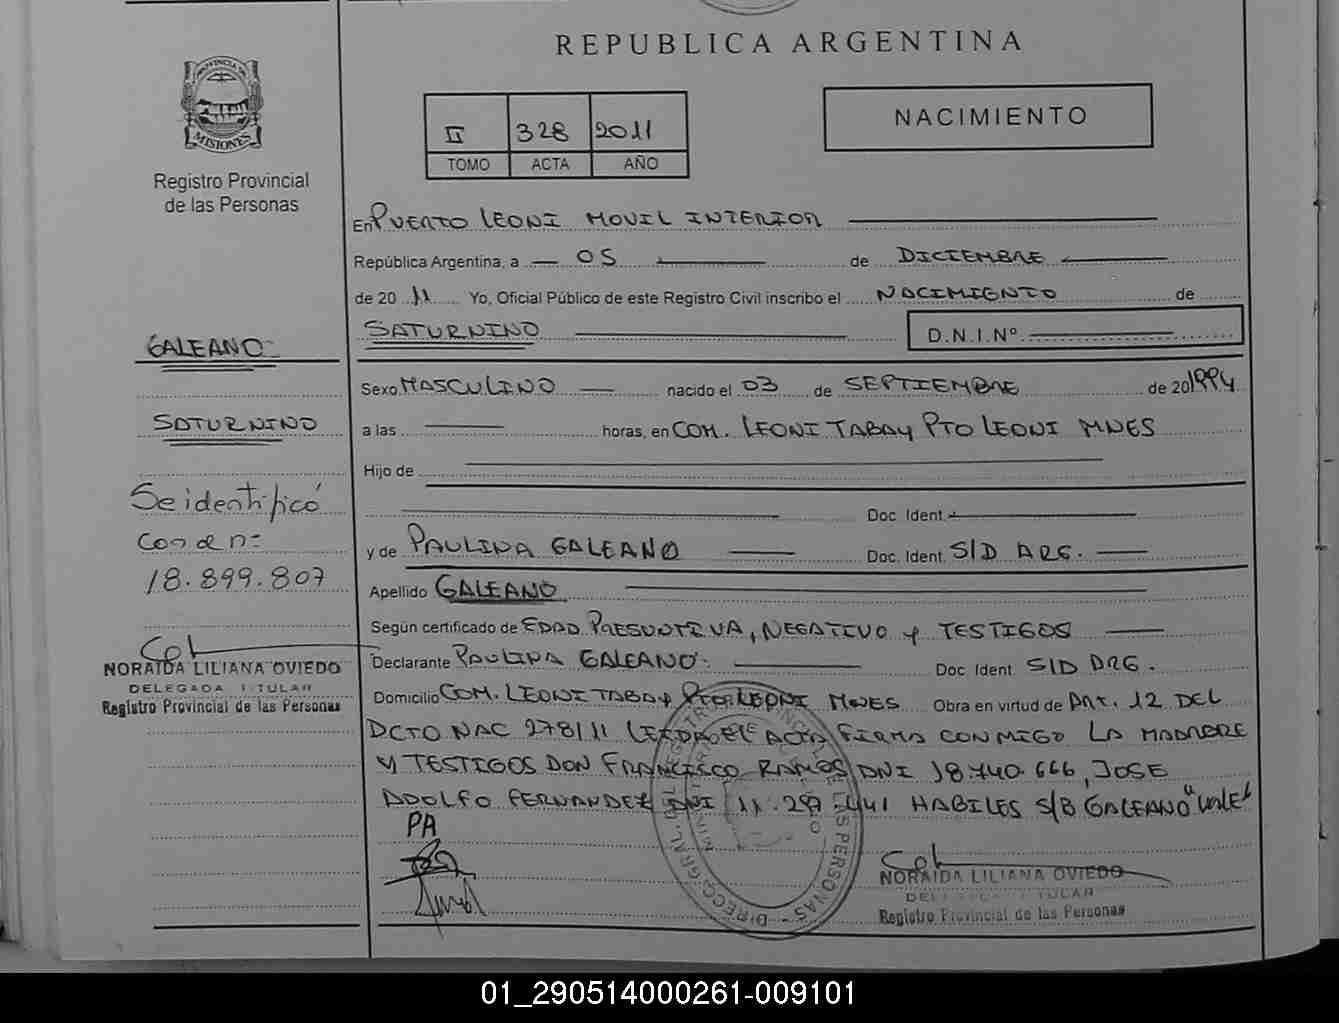 REPUBLICA ARGENTINA
PROVINCIA DE
MISIONES
Registro Provincial
de las Personas
II 328 2011
TOMO ACTA AÑO
NACIMIENTO
En PUERTO LEONI MOVIL INTERIOR
República Argentina, a 05 de DICIEMBRE
de 20 11 Yo, Oficial Público de este Registro Civil inscribo el NACIMIENTO de
SATURNINO D.N.I.Nº
GALEANO
Sexo MASCULINO nacido el 03 de SEPTIEMBRE de 20 1994
SATURNINO
a las horas, en COM. LEONI TABAY PTO LEONI MNES
Hijo de
Se identificó
Doc. Ident.
con dn:
y de PAULINA GALEANO Doc. Ident. S/D ARG.
18.899.807
Apellido GALEANO
Según certificado de EDAD PRESUNTIVA, NEGATIVO Y TESTIGOS
NORAIDA LILIANA OVIEDO
DELEGADA TITULAR
Registro Provincial de las Personas
Declarante PAULINA GALEANO Doc. Ident. S/D ARG.
Domicilio COM. LEONI TABAY PTO LEONI MNES Obra en virtud de ART. 12 DEL
DCTO NAC 278/11 LEIDA EL ACTA FIRMA CONMIGO LA MADRE
Y TESTIGOS DON FRANCISCO RAMOS DNI 18.740.666, JOSE
ADOLFO FERNANDEZ DNI 11.297.441 HABILES S/B GALEANO "VALE"
PA
NORAIDA LILIANA OVIEDO
DELEGADA TITULAR
Registro Provincial de las Personas
01_290514000261-009101